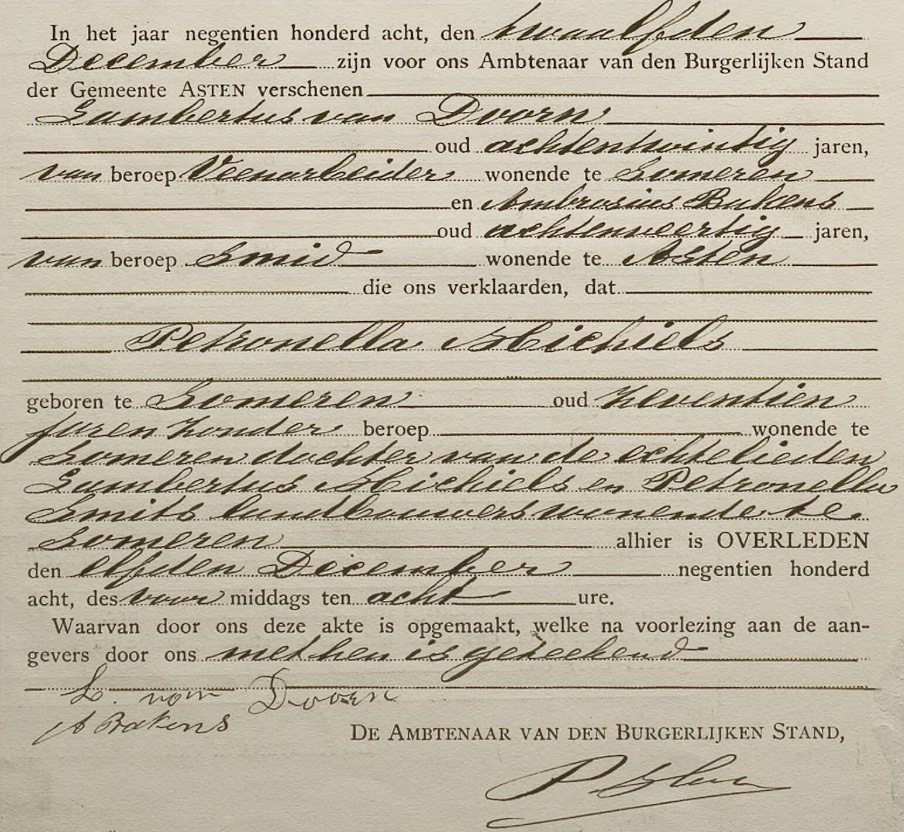 In het jaar negentien honderd acht, den twaalfden
December zijn voor ons Ambtenaar van den Burgerlijken Stand
der Gemeente ASTEN verschenen
Lambertus van Doorn
oud achtentwintig jaren,
van beroep Veenarbeider wonende te Someren
en Ambrosius Bukens
oud achtenveertig jaren,
van beroep Smid wonende te Asten
die ons verklaarden, dat
Petronella Michiels
geboren te Someren oud zeventien
jaren zonder beroep wonende te
Someren dochter van de echtelieden
Lambertus Michiels en Petronella
Smits landbouwers wonende te
Someren alhier is OVERLEDEN
den elfden December negentien honderd
acht, des voor middags ten acht ure.
Waarvan door ons deze akte is opgemaakt, welke na voorlezing aan de aan-
gevers door ons met hen is geteekend
L. van Doorn
A Bukens
DE AMBTENAAR VAN DEN BURGERLIJKEN STAND,